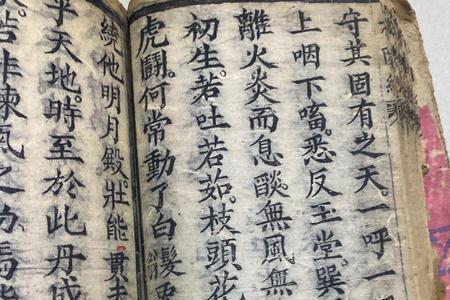 守其固有之天。一呼一
上咽下畜。悉反玉堂。巽
離火炎而息燄。無風無
初生。若吐若茹。枝頭花
虎鬪。何常動了白鬚
繞他明月殿。壯能
乎天地。時至於此丹成
若非煉氣之功焉能